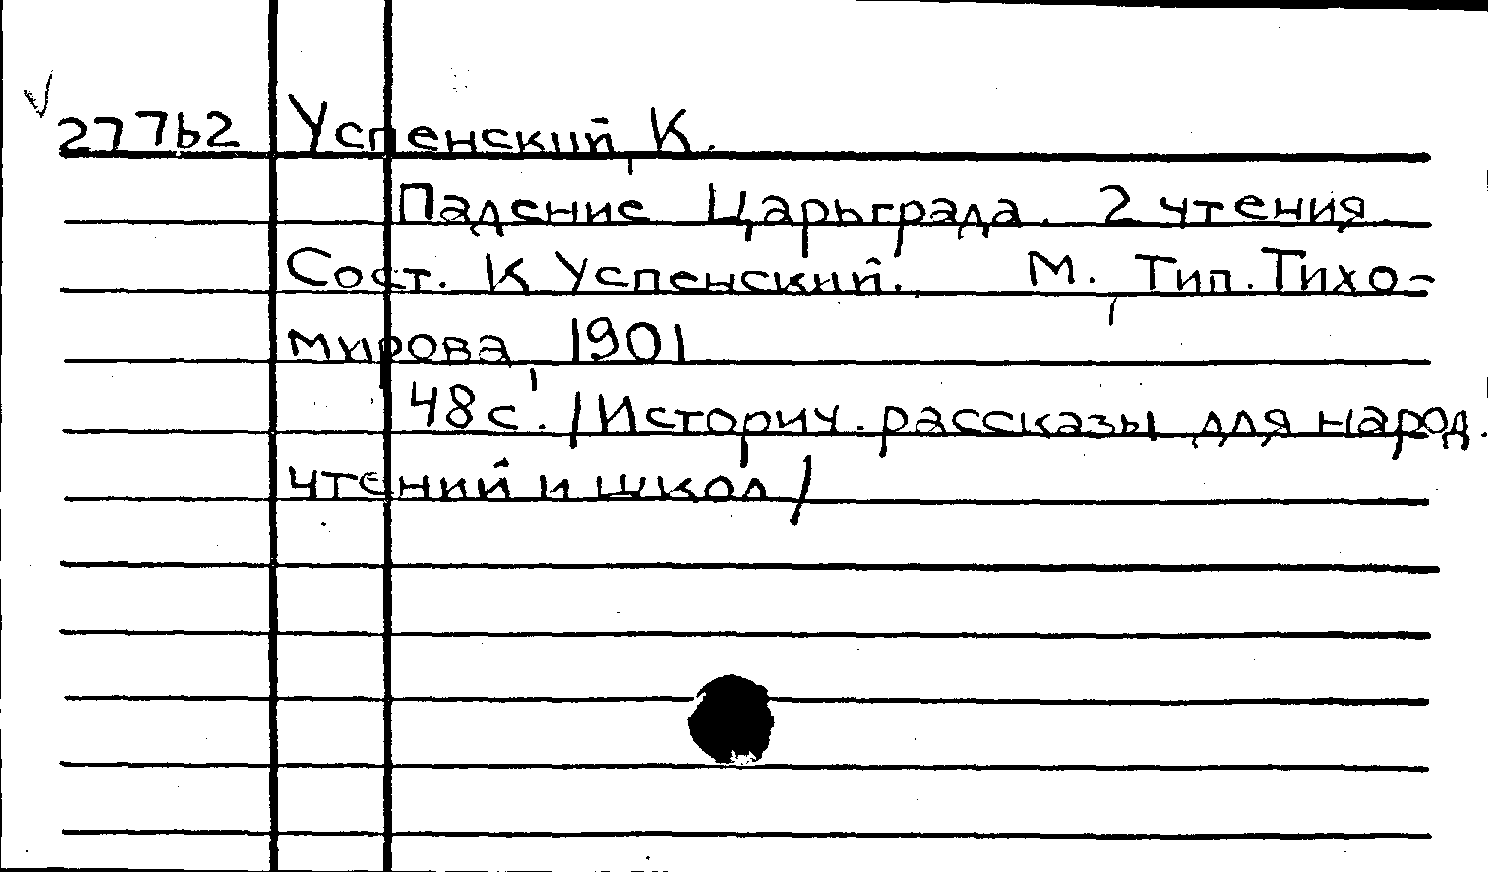 27762 Успенский, К.
Падение Царьграда. 2 чтения.
Сост. К Успенский. М., Тип. Тихо-
мирова, 1901
48 с. /Историч. рассказы для народ.
чтений и школ/